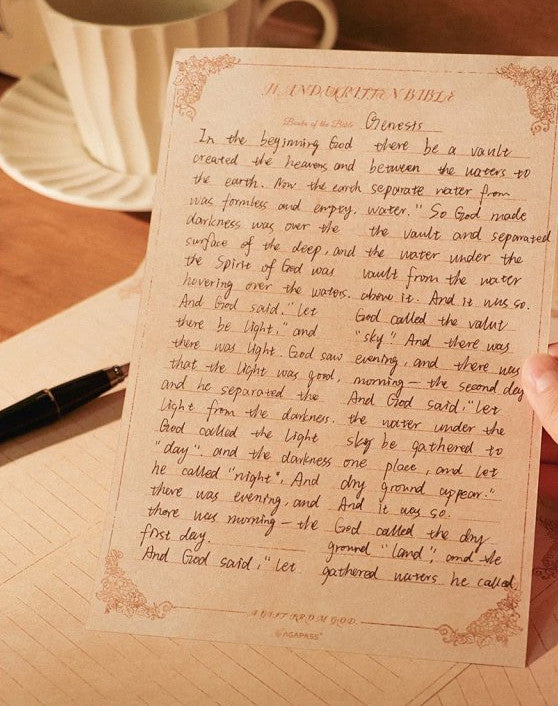 HANDWRITTEN BIBLE
Books of the Bible Genesis
In the beginning God
created the heavens and
the earth. Now the earth
was formless and empty.
darkness was over the
surface of the deep, and
the Spirit of God was
hovering over the waters.
And God said, "let
there be light," and
there was light. God saw
that the light was good,
and he separated the
light from the darkness.
God called the light
"day", and the darkness
he called "night". And
there was evening, and
there was morning — the
first day.
And God said, "let
there be a vault
between the waters to
separate water from
water." So God made
the vault and separated
the water under the
vault from the water
above it. And it was so.
God called the valut
"sky" And there was
evening, and there was
morning — the second day
And God said, "let
the water under the
sky be gathered to
one place, and let
dry ground appear."
And it was so.
God called the dry
ground "land", and the
gathered waters he called,
A GIFT FROM GOD
AGAPASS